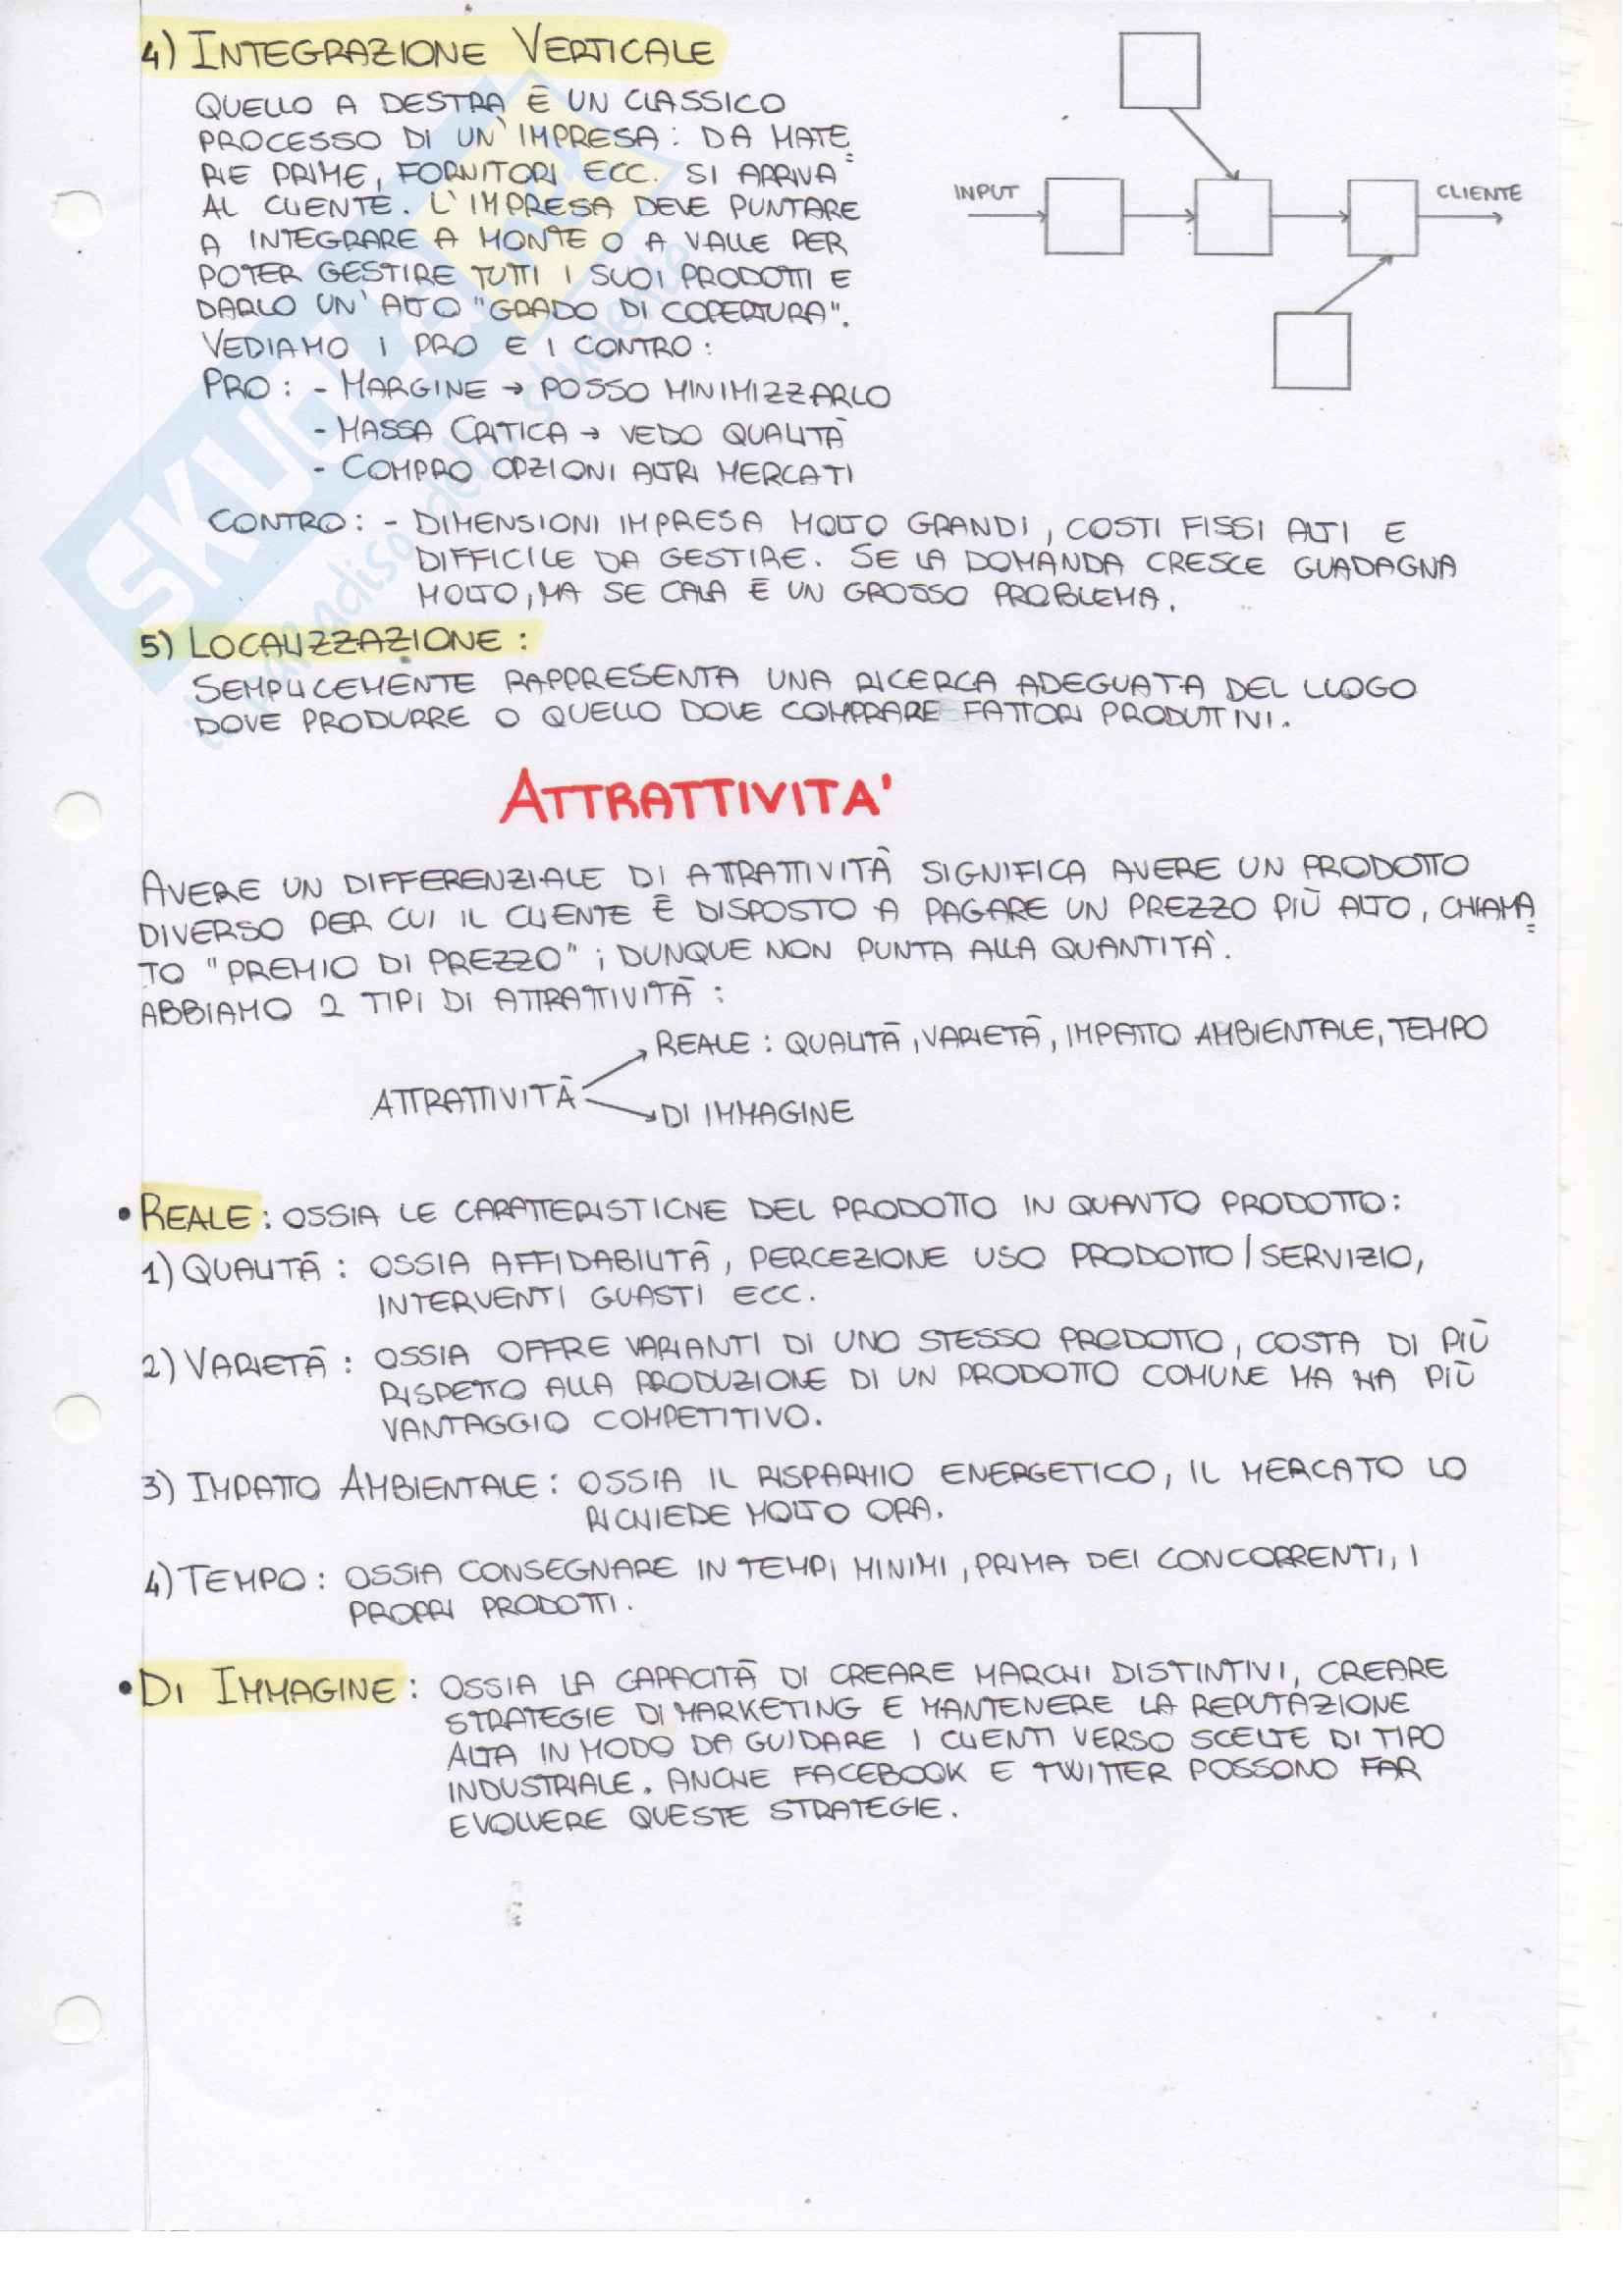 4) INTEGRAZIONE VERTICALE
QUELLO A DESTRA È UN CLASSICO
PROCESSO DI UN'IMPRESA: DA MATE=
RIE PRIME, FORNITORI ECC. SI ARRIVA
AL CLIENTE. L'IMPRESA DEVE PUNTARE
A INTEGRARE A MONTE O A VALLE PER
POTER GESTIRE TUTTI I SUOI PRODOTTI E
DARLO UN'ALTO "GRADO DI COPERTURA".
VEDIAMO I PRO E I CONTRO:
INPUT
CLIENTE
PRO: - MARGINE → POSSO MINIMIZZARLO
- MASSA CRITICA → VEDO QUALITÀ
- COMPRO OPZIONI ALTRI MERCATI
CONTRO: - DIMENSIONI IMPRESA MOLTO GRANDI, COSTI FISSI ALTI E
DIFFICILE DA GESTIRE. SE LA DOMANDA CRESCE GUADAGNA
MOLTO, MA SE CALA È UN GROSSO PROBLEMA.
5) LOCALIZZAZIONE:
SEMPLICEMENTE RAPPRESENTA UNA RICERCA ADEGUATA DEL LUOGO
DOVE PRODURRE O QUELLO DOVE COMPRARE FATTORI PRODUTTIVI.
ATTRATTIVITA'
AVERE UN DIFFERENZIALE DI ATTRATTIVITÀ SIGNIFICA AVERE UN PRODOTTO
DIVERSO PER CUI IL CLIENTE È DISPOSTO A PAGARE UN PREZZO PIÙ ALTO, CHIAMA=
TO "PREMIO DI PREZZO"; DUNQUE NON PUNTA ALLA QUANTITÀ.
ABBIAMO 2 TIPI DI ATTRATTIVITÀ:
REALE: QUALITÀ, VARIETÀ, IMPATTO AMBIENTALE, TEMPO
ATTRATTIVITÀ
DI IMMAGINE
• REALE: OSSIA LE CARATTERISTICHE DEL PRODOTTO IN QUANTO PRODOTTO:
1) QUALITÀ: OSSIA AFFIDABILITÀ, PERCEZIONE USO PRODOTTO/SERVIZIO,
INTERVENTI GUASTI ECC.
2) VARIETÀ: OSSIA OFFRE VARIANTI DI UNO STESSO PRODOTTO, COSTA DI PIÙ
RISPETTO ALLA PRODUZIONE DI UN PRODOTTO COMUNE MA HA PIÙ
VANTAGGIO COMPETITIVO.
3) IMPATTO AMBIENTALE: OSSIA IL RISPARMIO ENERGETICO, IL MERCATO LO
RICHIEDE MOLTO ORA.
4) TEMPO: OSSIA CONSEGNARE IN TEMPI MINIMI, PRIMA DEI CONCORRENTI, I
PROPRI PRODOTTI.
• DI IMMAGINE: OSSIA LA CAPACITÀ DI CREARE MARCHI DISTINTIVI, CREARE
STRATEGIE DI MARKETING E MANTENERE LA REPUTAZIONE
ALTA IN MODO DA GUIDARE I CLIENTI VERSO SCELTE DI TIPO
INDUSTRIALE. ANCHE FACEBOOK E TWITTER POSSONO FAR
EVOLVERE QUESTE STRATEGIE.